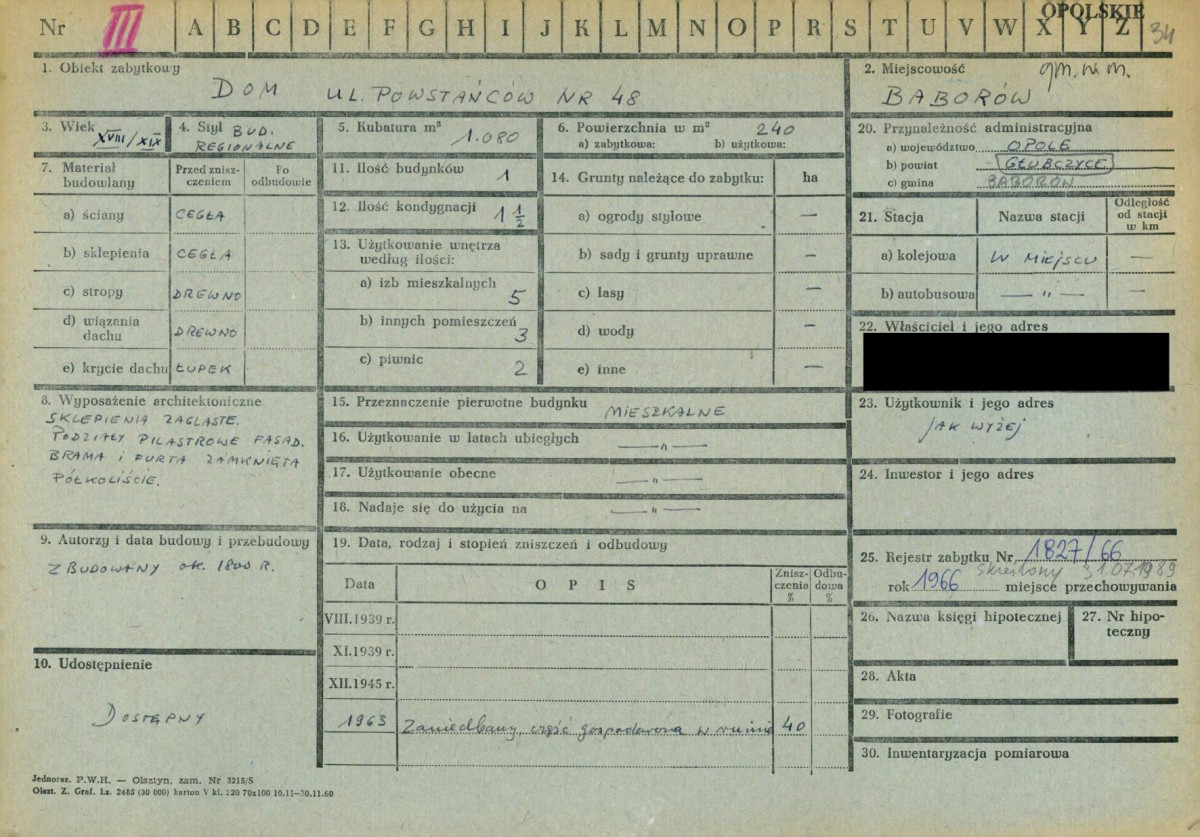 OPOLSKIE
Nr III A B C D E F G H I J K L M N O P R S T U V W X Y Z 34
1. Obiekt zabytkowy
DOM UL. POWSTAŃCÓW NR 48
2. Miejscowość gm. w m.
BABORÓW
3. Wiek
XVIII/XIX
4. Styl BUD.
REGIONALNE
5. Kubatura m³
1.080
6. Powierzchnia w m² 240
a) zabytkowa: b) użytkowa:
7. Materiał budowlany
Przed zniszczeniem
Po odbudowie
a) ściany CEGŁA
b) sklepienia CEGŁA
c) stropy DREWNO
d) wiązania dachu DREWNO
e) krycie dachu ŁUPEK
8. Wyposażenie architektoniczne
SKLEPIENIA ZAGLASTE.
PODZIAŁY PILASTROWE FASAD.
BRAMA I FURTA ZAMKNIĘTA
PÓŁKOLIŚCIE.
9. Autorzy i data budowy i przebudowy
ZBUDOWANY OK. 1800 R.
10. Udostępnienie
DOSTĘPNY
11. Ilość budynków 1
12. Ilość kondygnacji 1 1/2
13. Użytkowanie wnętrza
według ilości:
a) izb mieszkalnych 5
b) innych pomieszczeń 3
c) piwnic 2
14. Grunty należące do zabytku: ha
a) ogrody stylowe —
b) sady i grunty uprawne —
c) lasy —
d) wody —
e) inne —
15. Przeznaczenie pierwotne budynku MIESZKALNE
16. Użytkowanie w latach ubiegłych —„—
17. Użytkowanie obecne —„—
18. Nadaje się do użycia na —„—
19. Data, rodzaj i stopień zniszczeń i odbudowy
Data OPIS Zniszczenia % Odbudowa %
VIII.1939 r.
XI.1939 r.
XII.1945 r.
1963 Zaniedbany, część gospodarcza w ruinie 40
20. Przynależność administracyjna
a) województwo OPOLE
b) powiat GŁUBCZYCE
c) gmina BABORÓW
21. Stacja Nazwa stacji Odległość od stacji w km
a) kolejowa W MIEJSCU —
b) autobusowa —„— —
22. Właściciel i jego adres
23. Użytkownik i jego adres
JAK WYŻEJ
24. Inwestor i jego adres
25. Rejestr zabytku Nr 1827/66
skreślony 31.07.1989
rok 1966 miejsce przechowywania
26. Nazwa księgi hipotecznej
27. Nr hipoteczny
28. Akta
29. Fotografie
30. Inwentaryzacja pomiarowa
Jednoraz. P.W.H. — Olsztyn, zam. Nr 3215/S
Olszt. Z. Graf. Lz. 2485 (30 000) karton V kl. 220 70x100 10.11—30.11.60